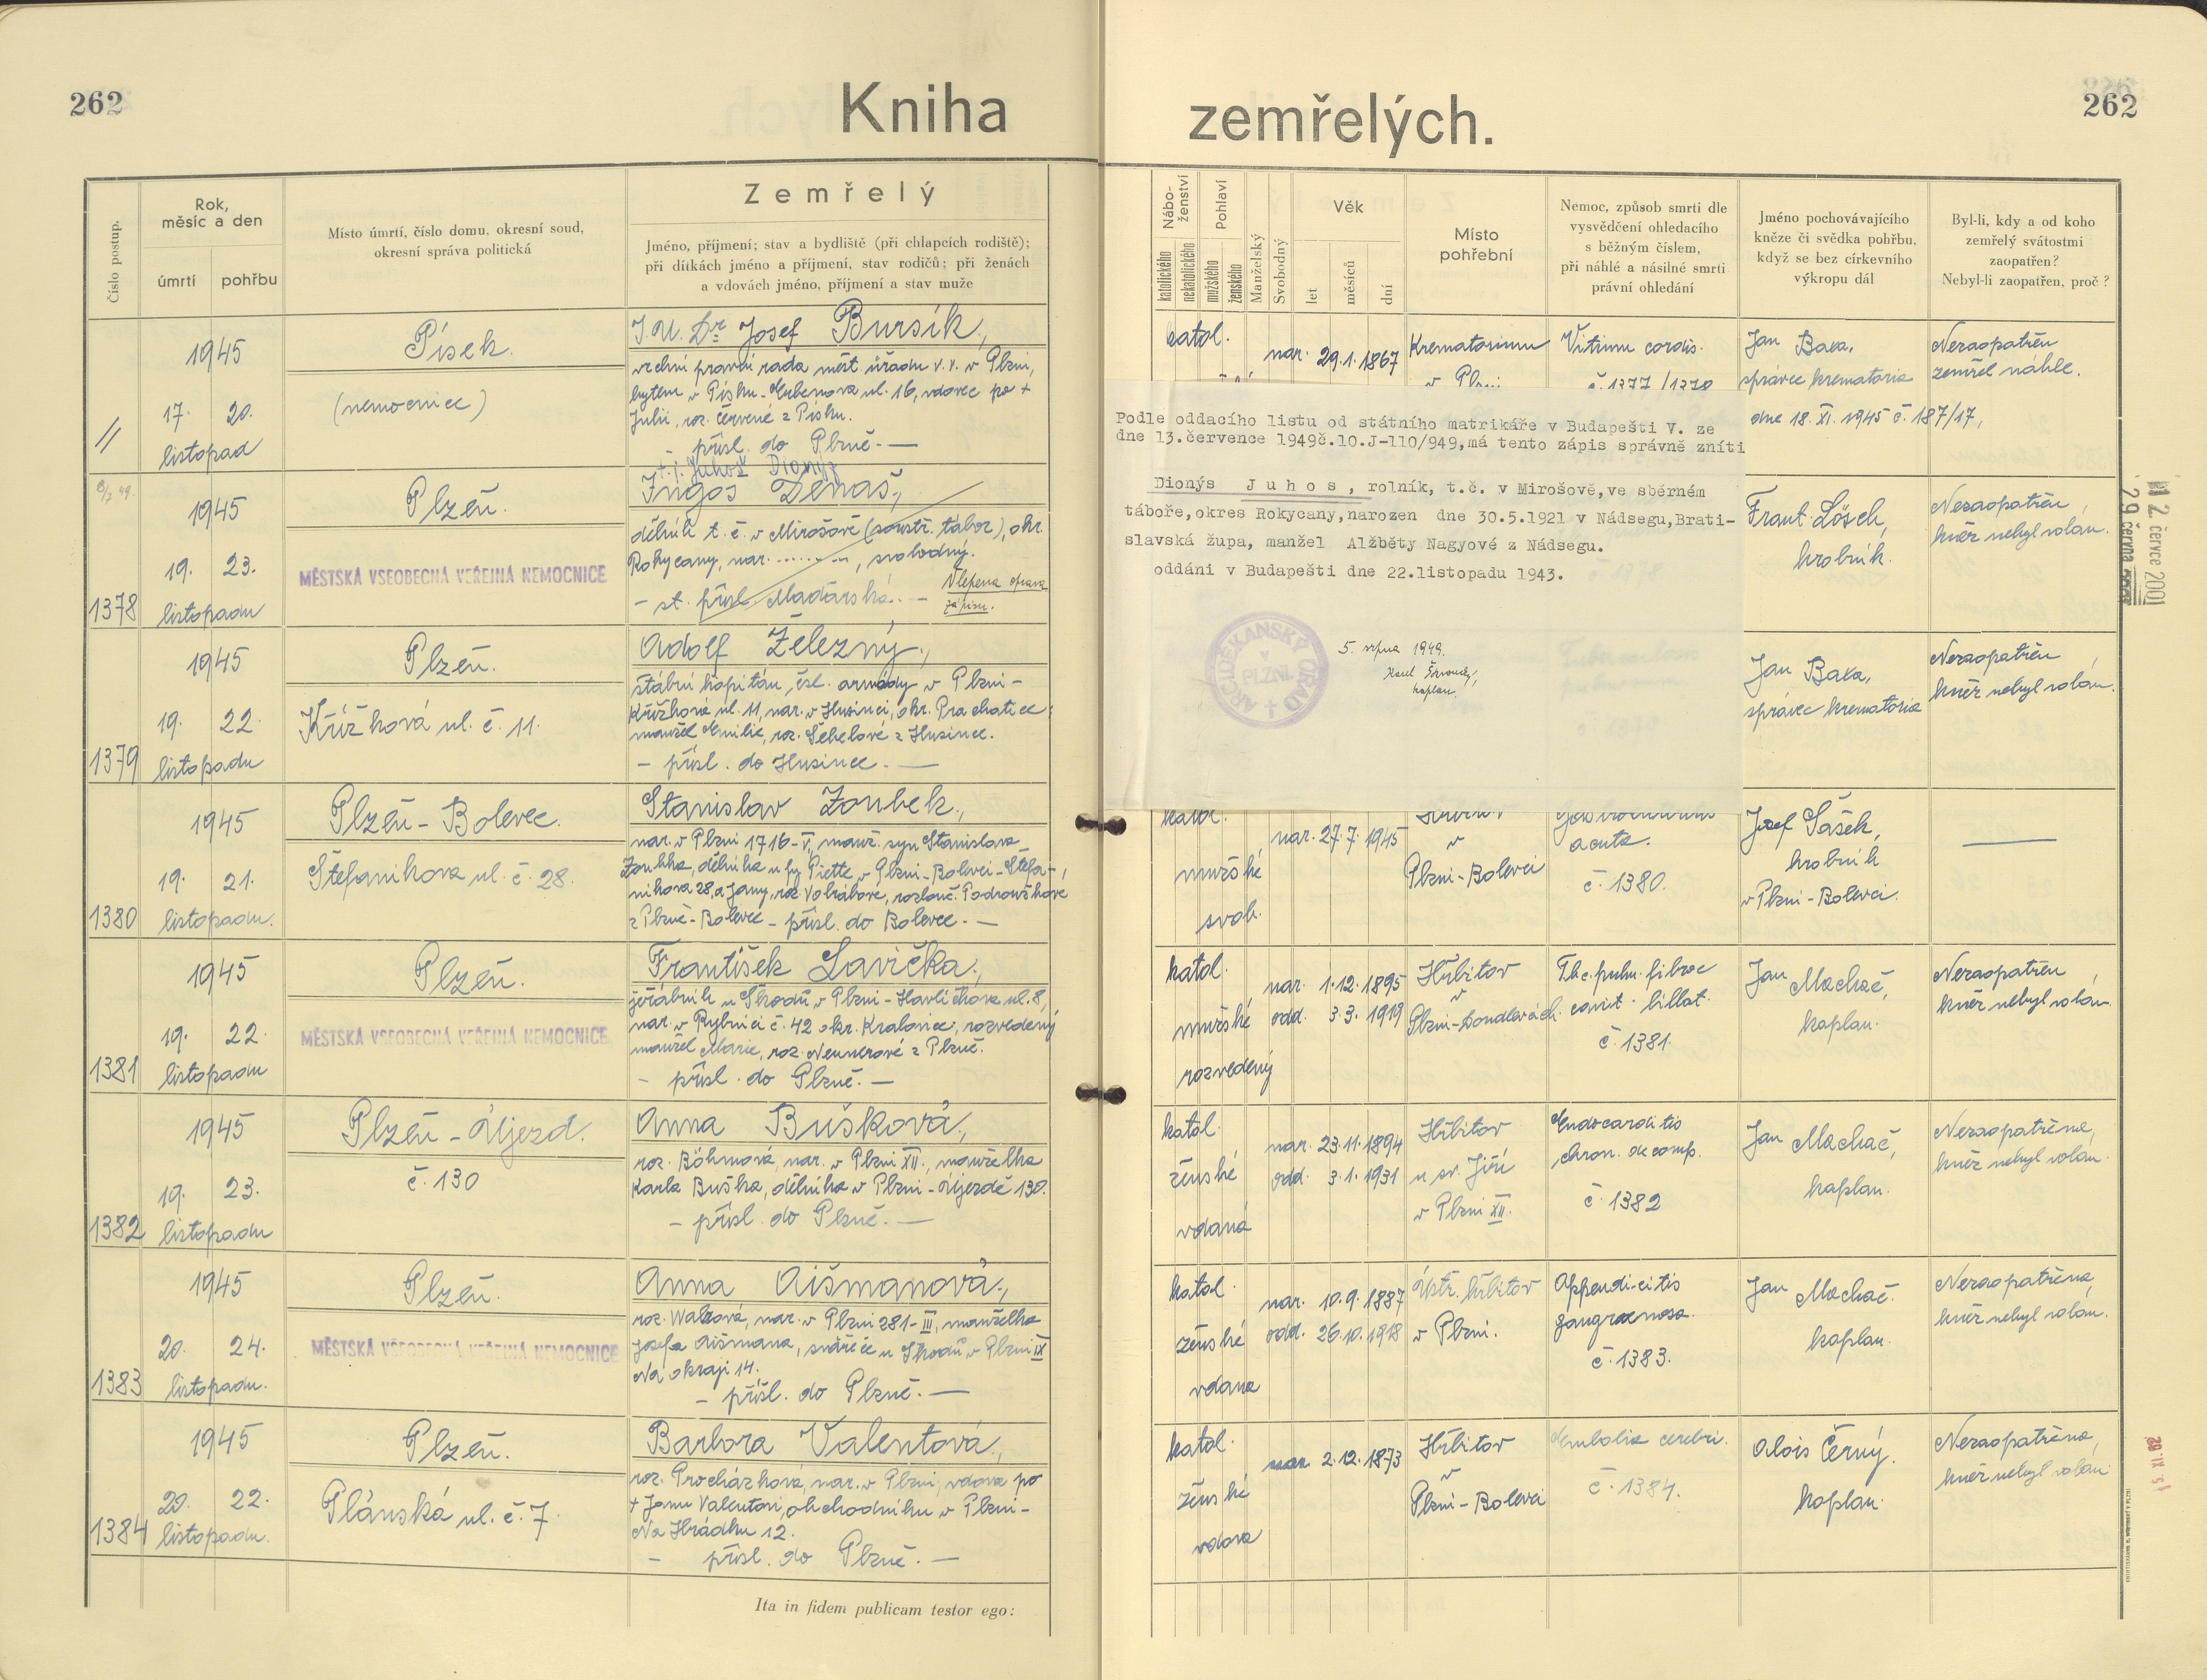 262
Kniha
zemřelých.
262
Číslo postup.
Rok,
měsíc a den
úmrtí
pohřbu
Místo úmrtí, číslo domu, okresní soud,
okresní správa politická
Zemřelý
Jméno, příjmení; stav a bydliště (při chlapcích rodiště);
při dítkách jméno a příjmení, stav rodičů; při ženách
a vdovách jméno, příjmení a stav muže
Nábo-
ženství
katolického
nekatolického
Pohlaví
mužského
ženského
Manželský
Svobodný
Věk
let
měsíců
dní
Místo
pohřební
Nemoc, způsob smrti dle
vysvědčení ohledacího
s běžným číslem,
při náhlé a násilné smrti
právní ohledání
Jméno pochovávajícího
kněze či svědka pohřbu,
když se bez církevního
výkropu dál
Byl-li, kdy a od koho
zemřelý svátostmi
zaopatřen?
Nebyl-li zaopatřen, proč?
//
1945
17. 20.
listopad
Písek.
(nemocnice)
J.U.Dr Josef Bursík,
vrchní právní rada měst. úřadu v.v. v Plzni,
bytem v Písku - ul. 16, vdovec po +
Julii, roz. Červené z Písku.
- přísl. do Plzně. -
katol.
nar. 29.1.1867
Krematorium
v Plzni
Vitium cordis.
č. 1377/1370
Jan Baxa,
správce krematoria
dne 18.XI.1945 č. 187/17,
Nezaopatřen
zemřel náhle.
1378
1945
19. 23.
listopadu
Plzeň.
MĚSTSKÁ VŠEOBECNÁ VEŘEJNÁ NEMOCNICE
t.j. Juhos Dionýz
Jugos Denaš,
dělník t.č. v Mirošově (soustř. tábor), okr.
Rokycany, nar. ........, svobodný.
- st. přísl. Maďarské. -
Vlepena oprava
zápisu.
Podle oddacího listu od státního matrikáře v Budapešti V. ze
dne 13.července 1949č.10.J-110/949,má tento zápis správně zníti
Dionýs Juhos, rolník, t.č. v Mirošově,ve sběrném
táboře,okres Rokycany,narozen dne 30.5.1921 v Nádsegu,Brati-
slavská župa, manžel Alžběty Nagyové z Nádsegu.
oddáni v Budapešti dne 22.listopadu 1943.
ARCIDĚKANSKÝ ÚŘAD
V
PLZNI
5. srpna 1949.
Karel
kaplan.
Frant. Lösch,
hrobník.
Nezaopatřen
kněz nebyl volán.
2. července 2001
29. června
1379
1945
19. 22.
listopadu
Plzeň.
Křížková ul. č. 11.
Adolf Železný,
štábní kapitán, čsl. armády v Plzni -
Křížkova ul. 11, nar. v Husinci, okr. Prachatice,
manžel Emilie, roz. Šebelové z Husince.
- přísl. do Husince. -
Jan Baxa,
správce krematoria
Nezaopatřen
kněz nebyl volán.
1380
1945
19. 21.
listopadu.
Plzeň - Bolevec.
Štefanikova ul. č. 28.
Stanislav Zoubek,
nar. v Plzni 1716-V., manž. syn Stanislava
Zoubka, dělníka u fy Piette v Plzni-Bolevci-Štefa-
nikova 28, a Jany, roz. Votrubové, rozlouč. Podroužkové
z Plzně-Bolevce - přísl. do Bolevce. -
katol.
mužské
svob.
nar. 27.7.1945
Hřbitov
v
Plzni-Bolevci
acuta.
č. 1380.
Josef Šašek,
hrobník
v Plzni-Bolevci.
1381
1945
19. 22.
listopadu
Plzeň.
MĚSTSKÁ VŠEOBECNÁ VEŘEJNÁ NEMOCNICE
František Lavička,
jeřábník u Škodů v Plzni-Havlíčkova ul. 8,
nar. v Rybnici č. 42 okr. Kralovice, rozvedený
manžel Marie, roz. Neunerové z Plzně.
- přísl. do Plzně. -
katol.
mužské
rozvedený
nar. 1.12.1895
odd. 3.3.1919
Hřbitov
v
Plzni-Doudlevcích.
Tbc. pulm. fibroc
cavit. billat.
č. 1381.
Jan Machač,
kaplan.
Nezaopatřen
kněz nebyl volán.
1382
1945
19. 23.
listopadu
Plzeň - Újezd.
č. 130
Anna Bušková,
roz. Böhmová, nar. v Plzni XII., manželka
Karla Buška, dělníka v Plzni-Újezdě 130.
- přísl. do Plzně. -
katol.
ženské
vdaná
nar. 23.11.1894
odd. 3.1.1931
Hřbitov
u sv. Jiří
v Plzni XII.
Endocarditis
chron. decomp.
č. 1382
Jan Machač,
kaplan.
Nezaopatřena,
kněz nebyl volán.
1383
1945
20. 24.
listopadu.
Plzeň.
MĚSTSKÁ VŠEOBECNÁ VEŘEJNÁ NEMOCNICE
Anna Aišmanová,
roz. Walzová, nar. v Plzni 281-III, manželka
Josefa Aišmana, svářeče u Škodů v Plzni IX
Na okraji 14.
- přísl. do Plzně. -
katol.
ženské
vdana
nar. 10.9.1887
odd. 26.10.1918
Ústř. hřbitov
v Plzni.
Appendicitis
gangraenosa.
č. 1383.
Jan Machač.
kaplan.
Nezaopatřena,
kněz nebyl volán.
1384
1945
20. 22.
listopadu.
Plzeň.
Plánská ul. č. 7.
Barbora Valentová,
roz. Procházková, nar. v Plzni, vdova po
+ Janu Valentovi, obchodníku v Plzni-
Na Hrádku 12.
- přísl. do Plzně. -
katol.
ženské
vdova
nar. 2.12.1873
Hřbitov
v
Plzni-Bolevci
Embolia cerebri.
č. 1384.
Alois Černý.
kaplan.
Nezaopatřena,
kněz nebyl volán
Ita in fidem publicam testor ego: